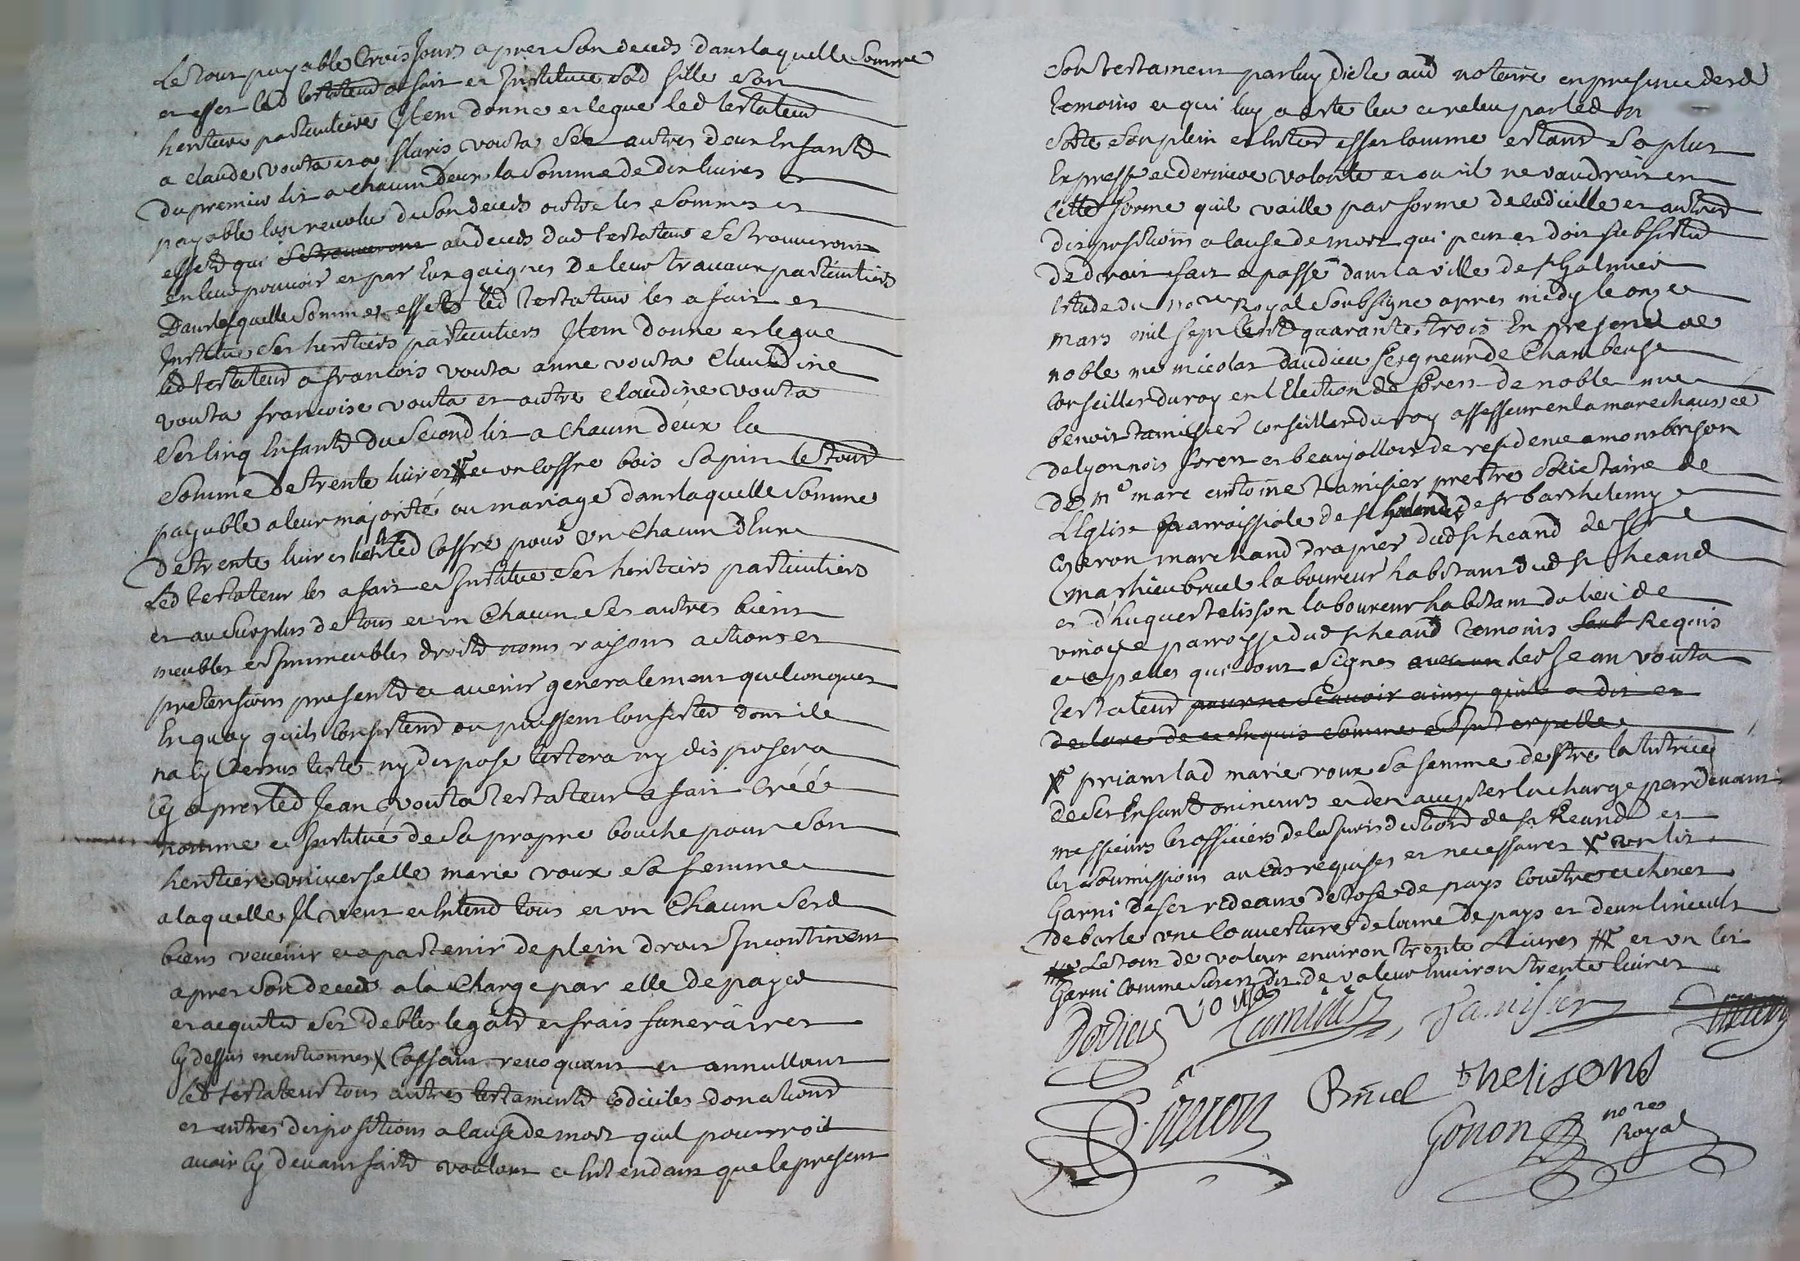 Le tout payable trois Jours apres son deceds dans laquelle somme
et effet led testateur a fait et Institue sad fille son
heritiere particuliere Item donne et legue led testateur
a claude vouta et a floris vouta ses autres deux Enfants
du premier lit a chacun deux la somme de dix livres
payable lan revolu de son deceds outre les sommes et
effets qui se trouveront au deceds dud testateur se trouveront
en leur pouvoir et par Eux gaignes de leur travaux particuliers
Dans lesquelle sommes et effets led testateur les a fait et
Institue ses heritiers particuliers Item donne et legue
led testateur a francois vouta anne vouta Claudine
vouta francoise vouta et autre claudine vouta
ses cinq Enfants du second lit a chacun deux la
somme de trente livres et un coffre bois sapin le tout
payable a leur majorité ou mariage dans laquelle somme
de trente livres led coffre pour un chacun dEux
led testateur les a fait et Institue ses heritiers particuliers
et au surplus de tous et un chacun ses autres biens
meubles et Immeubles droits noms raisons actions et
pretensions presents et avenir generalement quelconques
En quoy quils consistent ou puissent consister dont il
na cy dessus teste ny dispose testera ny disposera
cy apres led Jean vouta testateur a fait créé
nomme et Institué de sa propre bouche pour son
heritiere universelle marie roux sa femme
a laquelle Il veut et Entend tous et un chacun sesd
biens venenir et apartenir de plein droit Incontinent
apres son deceds a la charge par elle de payer
et acquiter ses debtes legats et frais funeraires
cy dessus mentionnes cassant revoquant et annullant
led testateur tous autres testaments codiciles donations
et autres dispositions a cause de mort quil pourroit
avoir cy devant faits voulant et Entendant que le present
son testament par luy dicte aud notaire en presence desd
temoins et qui luy a este leu et releu par led n
sorte son plein et Entier effet comme estant sa plus
Expresse et derniere volonte et ou il ne vaudroit en
cette forme quil vaille par forme de codicille et autres
dispositions a cause de mort qui peut et doit subsister
de droit fait et passé dans la ville de st Galmier
Etude du nore Royal soubsigne apres midy le onze
mars mil sept cent quarante trois En presence de
noble me nicolas daudieu seigneur de Chambeuse
conseiller du roy en l Election de forest de noble me
benoit tamisier conseiller du roy assesseur en la marechaussée
de lyonnois forest et beaujollois de residence a montbrison
de me marc antoine tamisier prestre societaire de
l Eglise parroissiale de st de st barthelemy
marchand drapier dud st heand de
mathieu bruel laboureur habitant dud st heand
et d huguet telisson laboureur habitant du lieu de
parroisse dud st heand temoins Requis
et apelles qui ont signes avec led Jean vouta
testateur pour ne scavoir ainsy quil a dit et
declare de ce Enquis comme et Interpelle
priant lad marie roux sa femme destre la tutrice
de ses Enfants mineurs et den accepter la charge pardevant
messieurs les officiers de la Jurisdiction de st heand et
les soumissions au cas requises et necessaires un lit
Garni de ses rideaux de pays coutres et chevet
de borle une couverture de laine de pays et deux linceuls
Le tout de valeur environ trente Livres et un lit
Garni comme de valeur Environ trente livres
vouta
tamisier
tamisier
Bruel thelisond
Gonon nore
Royal